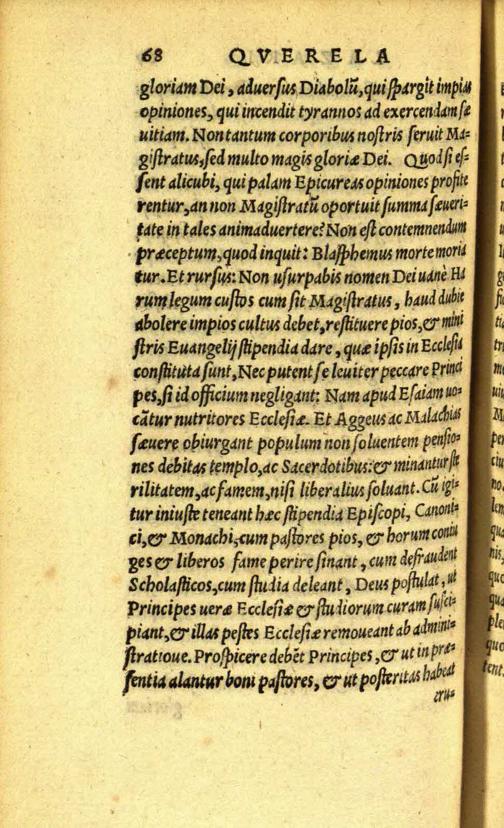 68 QVERELA
gloriam Dei, aduersus Diabolū, qui spargit impias
opiniones, qui incendit tyrannos ad exercendam sæ
uitiam. Non tantum corporibus nostris seruit Ma-
gistratus, sed multo magis gloriæ Dei. Quod si es-
sent alicubi, qui palam Epicureas opiniones profite
rentur, an non Magistratū oportuit summa sæueri-
tate in tales animaduertere? Non est contemnendum
præceptum, quod inquit: Blasphemus morte moria
tur. Et rursus: Non usurpabis nomen Dei uanè. Ha
rum legum custos cum sit Magistratus, haud dubie
abolere impios cultus debet, restituere pios, & mini
stris Euangelij stipendia dare, quæ ipsis in Ecclesia
constituta sunt, Nec putent se leuiter peccare Princi
pes, si id officium negligant: Nam apud Esaiam uo-
cātur nutritores Ecclesiæ. Et Aggeus ac Malachias
sæuere obiurgant populum non soluentem pensio-
nes debitas templo, ac Sacerdotibus: & minantur ste
rilitatem, ac famem, nisi liberalius soluant. Cū igi-
tur iniuste teneant hæc stipendia Episcopi, Canoni-
ci, & Monachi, cum pastores pios, & horum coniu
ges & liberos fame perire sinant, cum defraudent
Scholasticos, cum studia deleant, Deus postulat, ut
Principes ueræ Ecclesiæ & studiorum curam susci-
piant, & illas pestes Ecclesiæ remoueant ab admini-
stratioue. Prospicere debēt Principes, & ut in præ-
sentia alantur boni pastores, & ut posteritas habeat
eru-